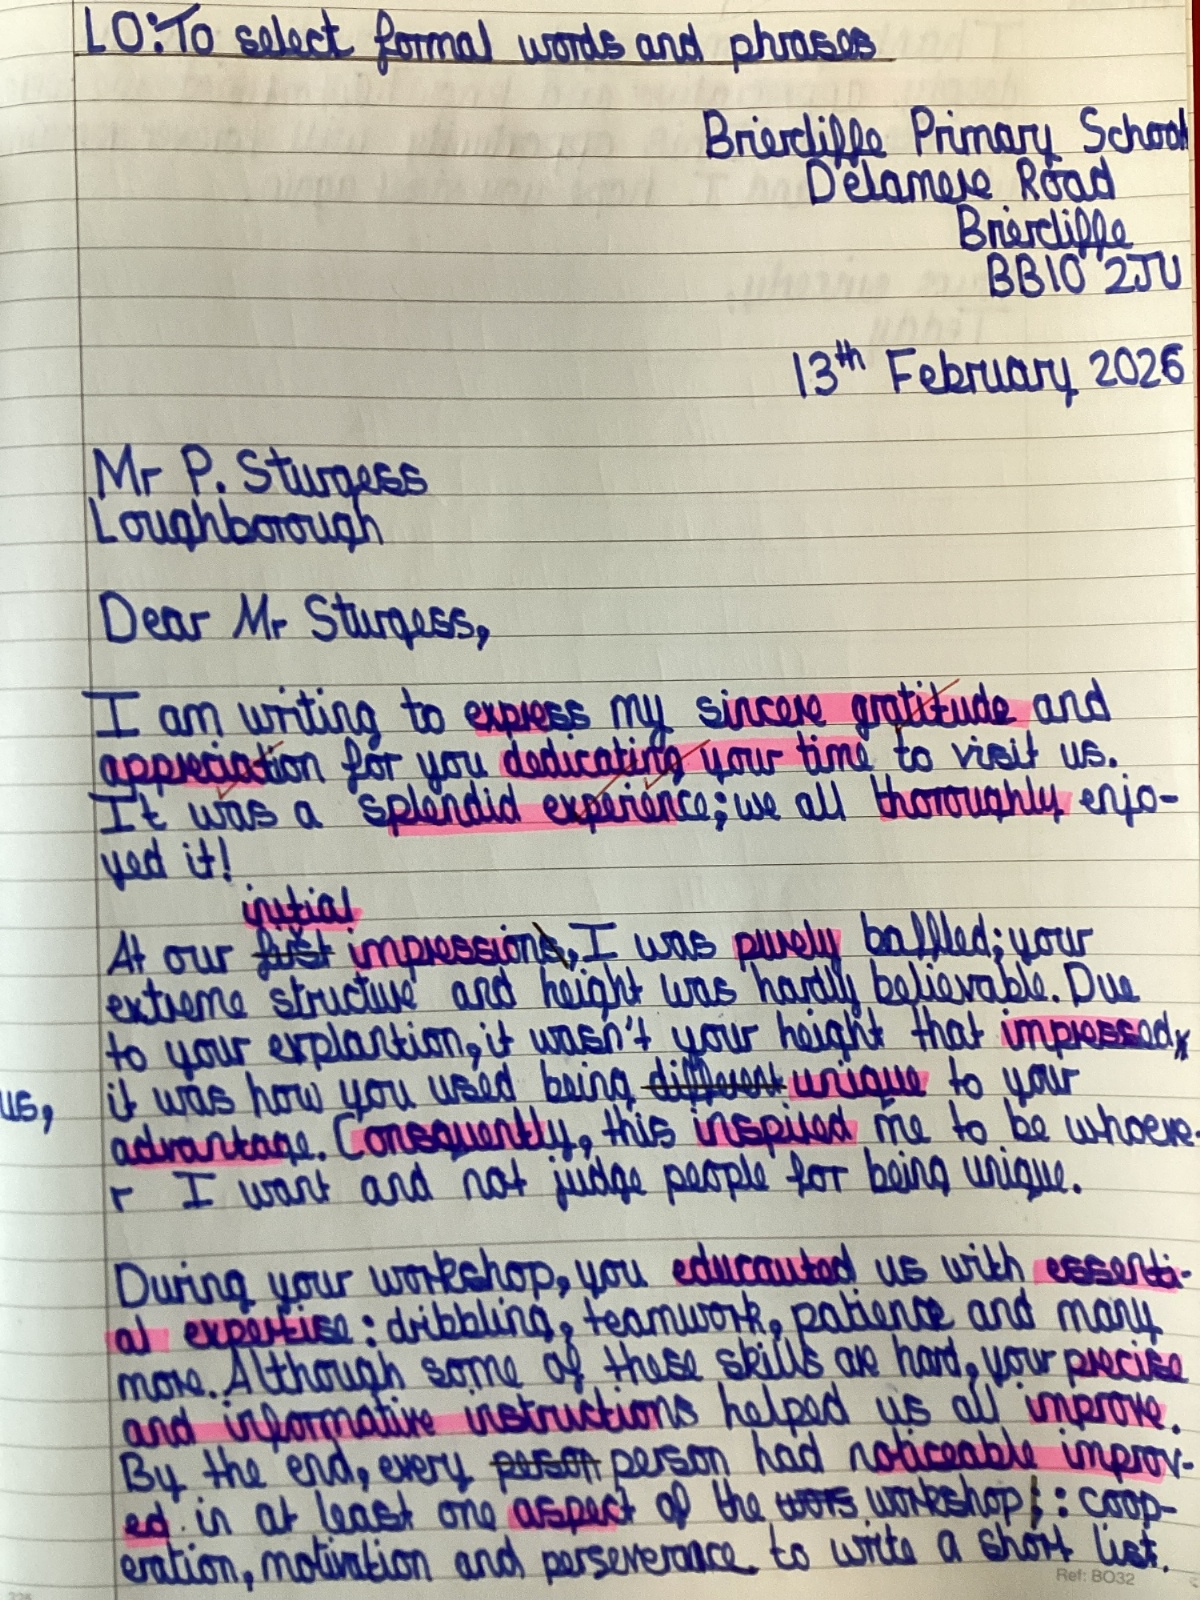 LO: To select formal words and phrases
Briercliffe Primary School
Delamere Road
Briercliffe
BB10 2JU
13th February 2026
Mr P. Sturgess
Loughborough
Dear Mr Sturgess,
I am writing to express my sincere gratitude and
appreciation for you dedicating your time to visit us.
It was a splendid experience; we all thoroughly enjo-
yed it!
initial
At our first impressions, I was purely baffled; your
extreme structure and height was hardly believable. Due
to your explantion, it wasn't your height that impressed
us, it was how you used being different unique to your
advantage. Consequently, this inspired me to be whoeve-
r I want and not judge people for being unique.
During your workshop, you educauted us with essenti-
al expertise: dribbling, teamwork, patience and many
more. Although some of these skills are hard, your precise
and informative instructions helped us all improve.
By the end, every person person had noticeable improv-
ed in at least one aspect of the workshop: coop-
eration, motivation and perseverance to write a short list.
Ref: BO32